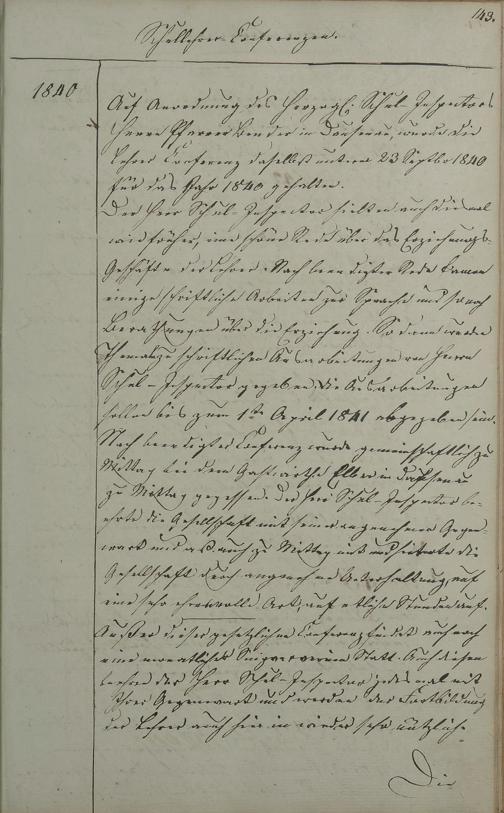 143.
Schullehrer Conferenzen.
1840
Auf Anordnung des Herzogl. Schul-Inspectors
Herrn Pfarrer Bender in Dausenau, wurde die
Lehrer Conferenz daselbst unterm 23 Septbr 1840
für das Jahr 1840 gehalten.
Der Herr Schul-Inspector hielten auch diesmal
wie früher, eine schöne Rede über das Erziehungs-
Geschäft der Lehrer. Nach beendigter Rede kamen
einige schriftliche Arbeiten zur Sprache und so noch
Berathungen über die Erziehung. Sodann wurden
Themata zu schriftlichen Ausarbeitungen von Herrn
Schul-Inspector gegeben, die Ausarbeitungen
sollen bis zum 1ten April 1841 abgegeben sein.
Nach beendigter Conferenz wurde gemeinschaftlich zu
Mittag bei dem Gastwirthe in Dausenau
zu Mittag gegessen. Der Herr Schul-Inspector be-
ehrte die Gesellschaft mit seiner angenehmen Gegen-
wart und aß auch zu Mittag mit und die
Gesellschaft durch angenehme Unterhaltung, auf
eine sehr ehrenvolle Art, auf etliche Stunden auf.
Außer dieser gesetzlichen Conferenz findet auch noch
eine monatliche Statt. Auch diesen
der Herr Schul-Inspector jedesmal mit
Ihrer Gegenwart und werden der Fortbildung
der Lehrer auch hierin wieder sehr nützlich.
Die